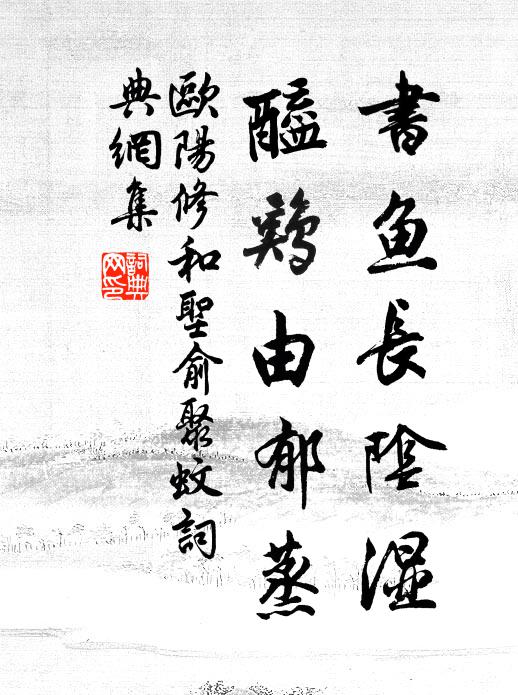 書魚長陰溼
醯鷄由郁蒸
歐陽修和聖俞聚蚊詞
典網集
詞典網印